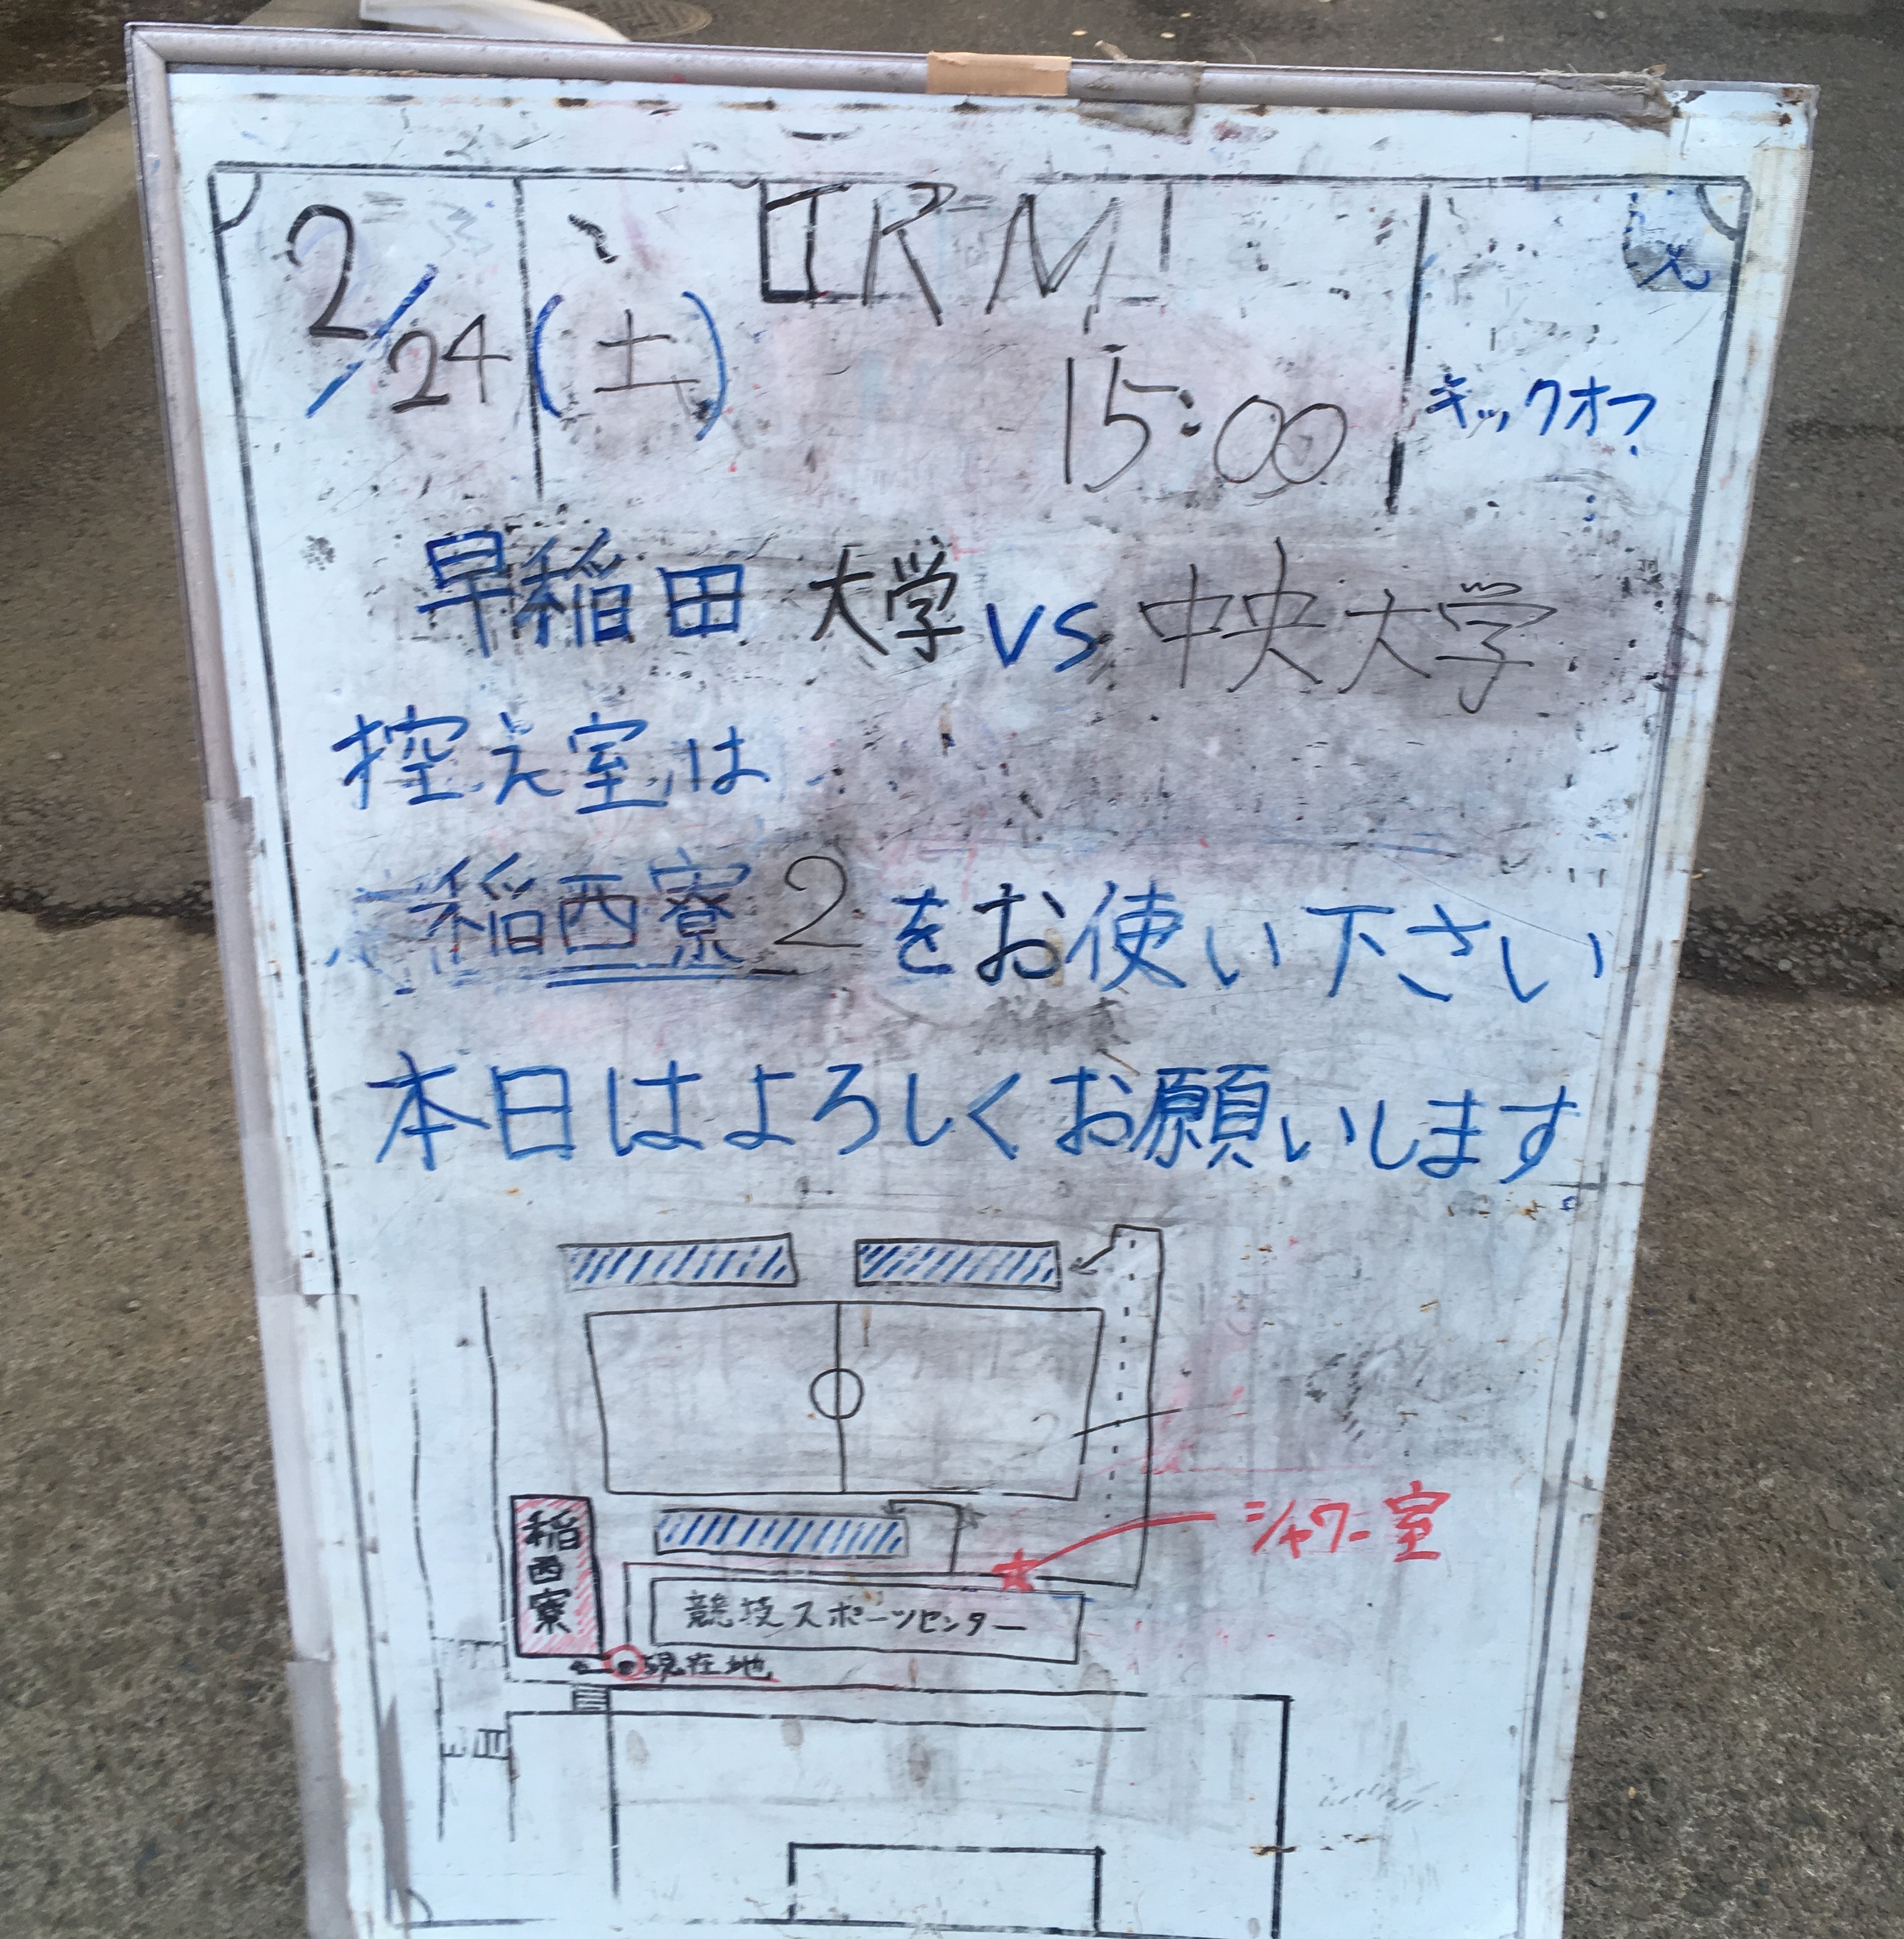 TRM
2/24(土) 15:00 キックオフ
早稲田大学 vs 中央大学
控え室は
稲西寮2をお使い下さい
本日はよろしくお願いします
シャワー室
稲西寮
競技スポーツセンター
現在地